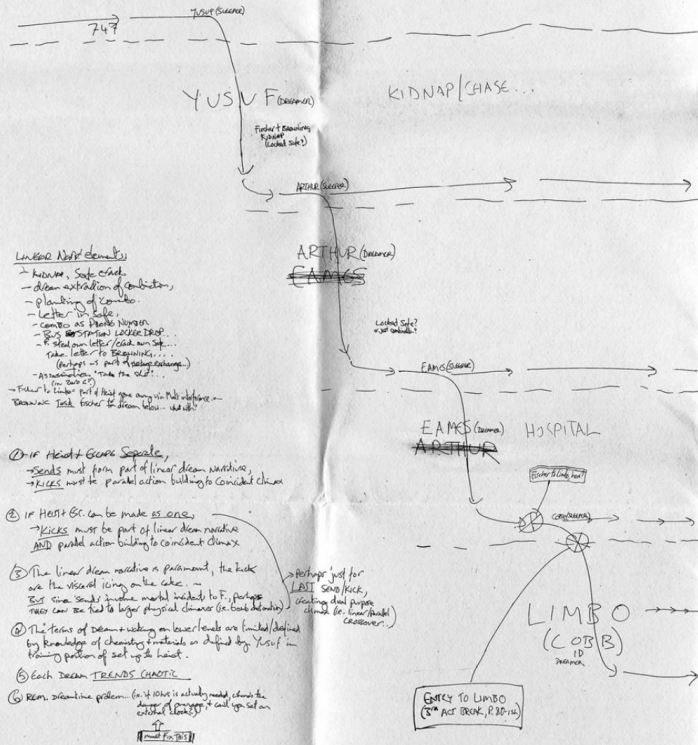 747
YUSUF (SLEEPER)
YUSUF (DREAMER)
KIDNAP/CHASE...
Fischer + Browning
KIDNAP
(Locked Safe?)
ARTHUR (SLEEPER)
ARTHUR (DREAMER)
EAMES
Locked Safe?
EAMES (SLEEPER)
EAMES (DREAMER)
ARTHUR
HOSPITAL
Fischer to Limbo, here?
COBB (SLEEPER)
LIMBO
(COBB)
DREAMER
ENTRY TO LIMBO
(3RD ACT BREAK, P.80-
LINEAR Narr elements:
- KIDNAP, Safe crack
- dream extraction of combination,
- planting of combo.
- Letter in safe,
- COMBO AS PHONE NUMBER
- BUS STATION LOCKER DROP...
- F. steal own letter/crack own safe...
Take letter to BROWNING....
(perhaps as part of exchange...)
- Assassination, "Take the
- Fischer to Limbo - part of Heist gone awry via Mal's interference -
BROWNING Fischer to dream below...
① IF Heist + Escape Separate,
→ SENDS must form part of linear dream narrative,
→ KICKS must be parallel action building to coincident climax
② IF HEIST + ESC. can be made as one,
→ KICKS must be part of linear dream narrative
AND parallel action building to coincident climax
③ The linear dream narrative is paramount, the kicks
are the visceral icing on the cake. -
BUT since sends involve mortal incidents to F., perhaps
THEY can be tied to larger physical climaxes (i.e. bomb detonation)
→ Perhaps just for
LAST SEND/KICK,
creating dual purpose
climax (i.e. linear/parallel
crossover..)
④ The terms of Dream + waking on lower levels are limited/defined
by knowledge of chemistry + materials as defined by Yusuf in
training portion of set up to heist.
⑤ Each Dream TRENDS CHAOTIC
⑥ REM. Dreamtime problem... (i.e. if 10 hrs is actually needed, chances the
danger of + could you set an
external clock?)
must Fix This!